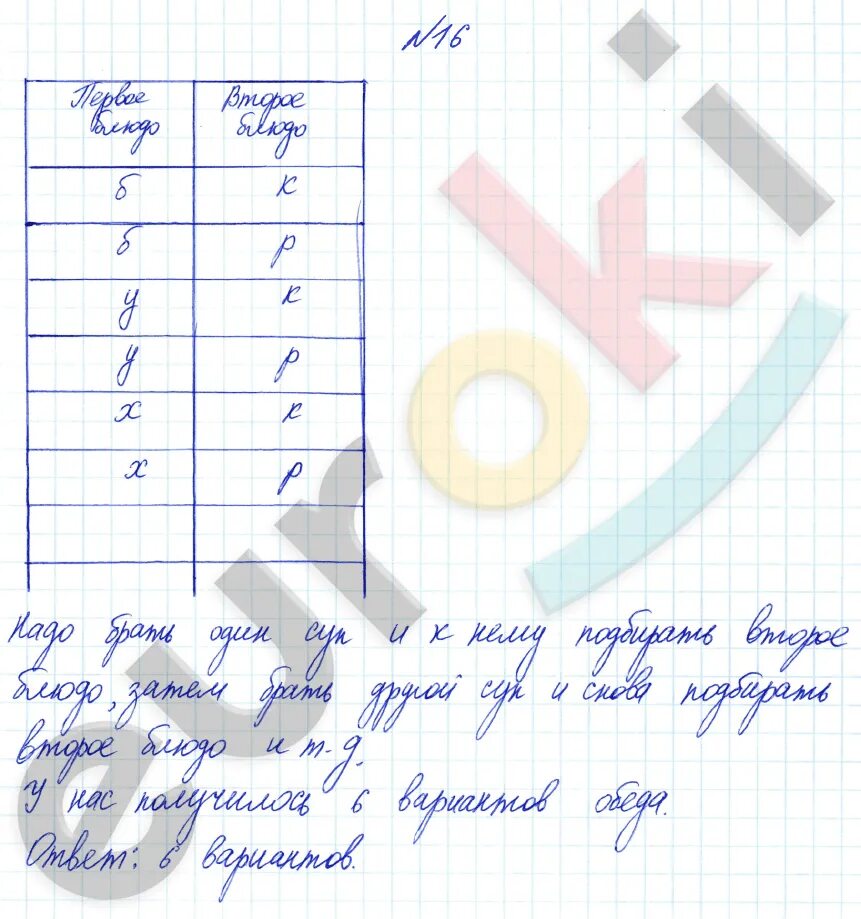 №16
Первое блюдо
Второе блюдо
б к
б р
у к
у р
х к
х р
Надо брать один суп и к нему подбирать второе
блюдо, затем брать другой суп и снова подбирать
второе блюдо и т.д.
У нас получилось 6 вариантов обеда.
Ответ: 6 вариантов.
euroki